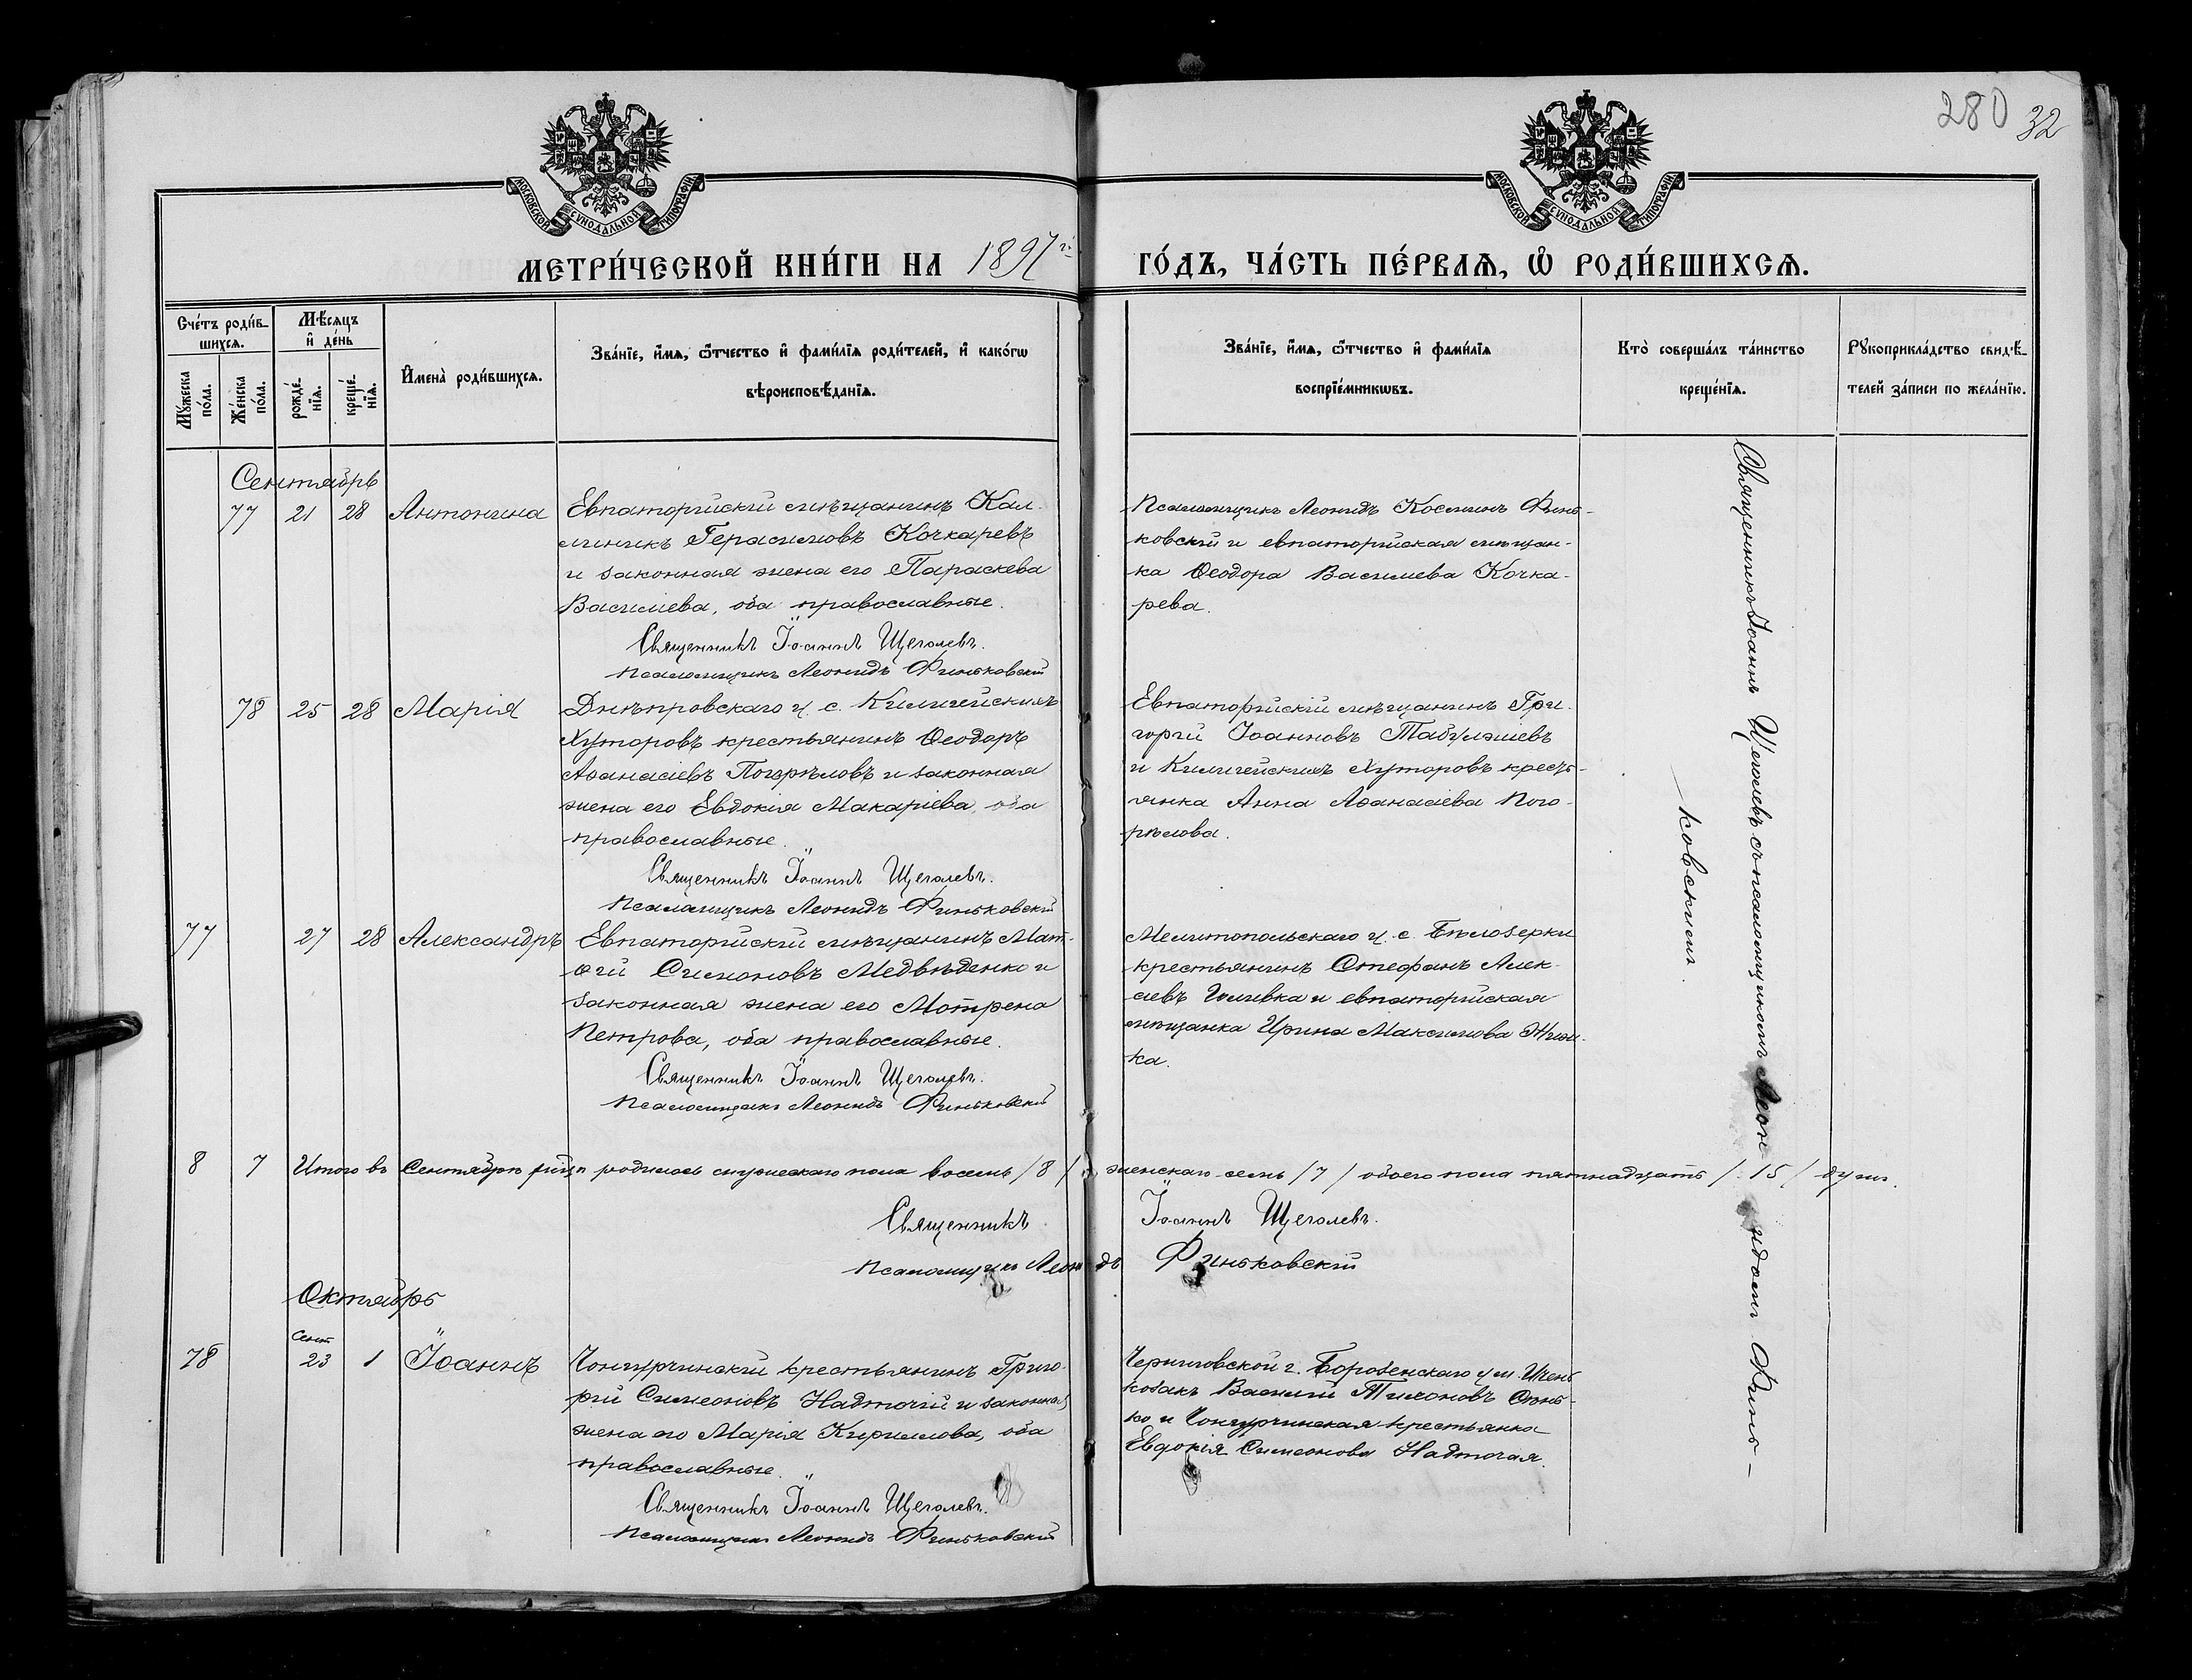 280 32
МОСКОВСКОЙ СѴНОДАЛЬНОЙ ТИПОГРАФІИ
МОСКОВСКОЙ СѴНОДАЛЬНОЙ ТИПОГРАФІИ
МЕТРИ́ЧЕСКОЙ КНИ́ГИ НА 1897 г.
ГО́ДЪ, ЧА́СТЬ ПЕ́РВАѦ, Ѡ҆ РОДИ́ВШИХСѦ.
Сче́тъ роди́в-
шихсѧ.
Мѣ́сяцъ
и҆ де́нь
Мꙋ́жеска
по́ла.
Же́нска
по́ла.
рожде́-
нїѧ.
креще́-
нїѧ.
И҆мена̀ роди́вшихсѧ.
Зва́нїе, и҆́мѧ, ѻ҆́тчество и҆ фами́лїѧ роди́телей, и҆ како́гѡ
вѣроисповѣ́данїѧ.
Зва́нїе, и҆́мѧ, ѻ҆́тчество и҆ фами́лїѧ
воспрїе́мникѡвъ.
Кто̀ соверша́лъ та́инство
креще́нїѧ.
Рꙋкоприкла́дство свидѣ́-
телей за́писи по жела́нїю.
Сентябрь
77 21 28 Антонина
Евпаторійскій мѣщанинъ Кал-
линикъ Герасимовъ Кочкаревъ
и законная жена его Параскева
Василіева, оба православные.
Священникъ Іоаннъ Щеголевъ.
Псаломщикъ Леонидъ Финьковскій
Псаломщикъ Леонидъ Косминъ Финь-
ковскій и евпаторійская мѣщан-
ка Ѳеодора Василіева Кочка-
рева.
78 25 28 Марія
Днѣпровскаго у. с. Килигейскихъ
Хуторовъ крестьянинъ Ѳеодоръ
Аѳанасіевъ Погорѣловъ и законная
жена его Евдокія Макаріева, оба
православные.
Священникъ Іоаннъ Щеголевъ.
Псаломщикъ Леонидъ Финьковскій
Евпаторійскій мѣщанинъ Гри-
горій Іоанновъ
и Килигейскихъ Хуторовъ кресть-
янка Анна Аѳанасіева Пого-
рѣлова.
77 27 28 Александръ
Евпаторійскій мѣщанинъ Мат-
ѳій Симоновъ Медвѣденко и
законная жена его Мотрена
Петрова, оба православные.
Священникъ Іоаннъ Щеголевъ.
Псаломщикъ Леонидъ Финьковскій
Мелитопольскаго у. с. Бѣлозерки
крестьянинъ Стефанъ Алек-
сіевъ и евпаторійская
мѣщанка Ирина Максимова
ка.
8 7 Итого въ Сентябрѣ мѣсяцѣ родилось мужескаго пола восемь /8/ и женскаго семь /7/ обоего пола пятнадцать /15/ душъ.
Священникъ Іоаннъ Щеголевъ.
Псаломщикъ Леонидъ Финьковскій
Октябрь
Сент.
78 23 1 Іоаннъ
Чонгурчинскій крестьянинъ Григо-
рій Симеоновъ Надточій и законная
жена его Марія Кириллова, оба
православные.
Священникъ Іоаннъ Щеголевъ.
Псаломщикъ Леонидъ Финьковскій
Черниговской г. Борозенскаго у. м. Ичень
козакъ Василій Тихоновъ
ко и Чонгурчинская крестьянка
Евдокія Симеонова Надточая.
Священникъ Іоаннъ Щеголевъ съ псаломщикомъ Леонидомъ Финь-
ковскимъ.